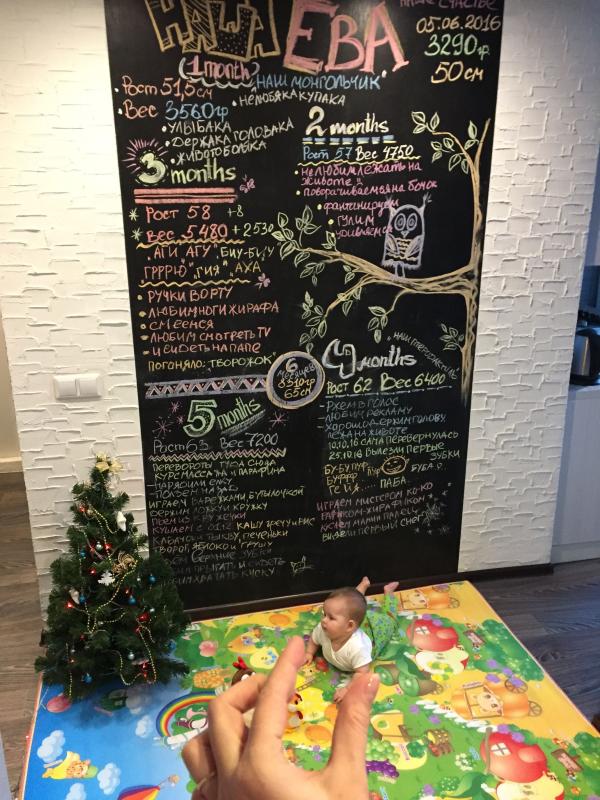 НАША ЕВА
НАШЕ СЧАСТЬЕ
05.06.2016
3290гр
50 см
1 month
• Рост 51,5см
• Вес 3560гр
• УЛЫБАКА
• ДЕРЖАКА ГОЛОВАКА
• ЖИВОТОБОЛЯКА
"НАШ МОНГОЛЬЧИК"
• НЕЛЮБЯКА КУПАКА
2 months
Рост 57 Вес 4750
• НЕ ЛЮБИМ ЛЕЖАТЬ НА
ЖИВОТЕ
• ПОВОРАЧИВАЕМСЯ НА БОЧОК
• ФАНТАНИРУЕМ
• ГУЛИМ
УДИВЛЯЕМСЯ
3 months
РОСТ 58 +8
ВЕС 5480 +2530
"АГИ АГУ", БИУ-БИ,У
ГРРРЮ", "ГИЯ", "АХА"
• РУЧКИ ВО РТУ
• ЛЮБИМ НОГИ ЖИРАФА
• СМЕЕМСЯ
• ЛЮБИМ СМОТРЕТЬ TV
• И СИДЕТЬ НА ПАПЕ
ПОГОНЯЛО: "ТВОРОЖОК"
6
МЕСЯЦЕВ
8510гр
65см
4 months
РОСТ 62 ВЕС 6400
- РЖЕМ В ГОЛОС
- ЛЮБИМ РЕКЛАМУ
- ХОРОШО ДЕРЖИМ ГОЛОВУ,
ЛЕЖА НА ЖИВОТЕ
10.10.16 САМА ПЕРЕВЕРНУЛАСЬ
25.10.16 ВЫЛЕЗЛИ ПЕРВЫЕ
ЗУБКИ
БУ-БУ
ПАБА
ИГРАЕМ С МИСТЕРОМ КО-КО
КУСАЕМ МАМИН ПАЛЕЦ
ВИДЕЛИ ПЕРВЫЙ СНЕГ
5 months
РОСТ 63. ВЕС 7200
ПЕРЕВОРОТЫ ТУДА СЮДА
КУРС МАССАЖА И ПАРАФИНА
- НАРЯДИЛИ ЕЛКУ
- ПОЛЗЕМ НАЗАД
ИГРАЕМ ВАРЕЖКАМИ БУТЫЛОЧКОЙ
ДЕРЖИМ ЛОЖКУ КРУЖКУ
ПЬЕМ ИЗ КРУЖЕЧКИ
КУШАЕМ С 01.12 КАШУ ГРЕЧУ И РИС
КАБАЧОК ТЫКВУ, ПЕЧЕНЬКИ
ТВОРОГ, ЯБЛОКО И ГРУШУ
ВЕРХНИЕ ЗУБКИ
ПРЫГАТЬ И СИДЕТЬ
ХВАТАТЬ КИСКУ